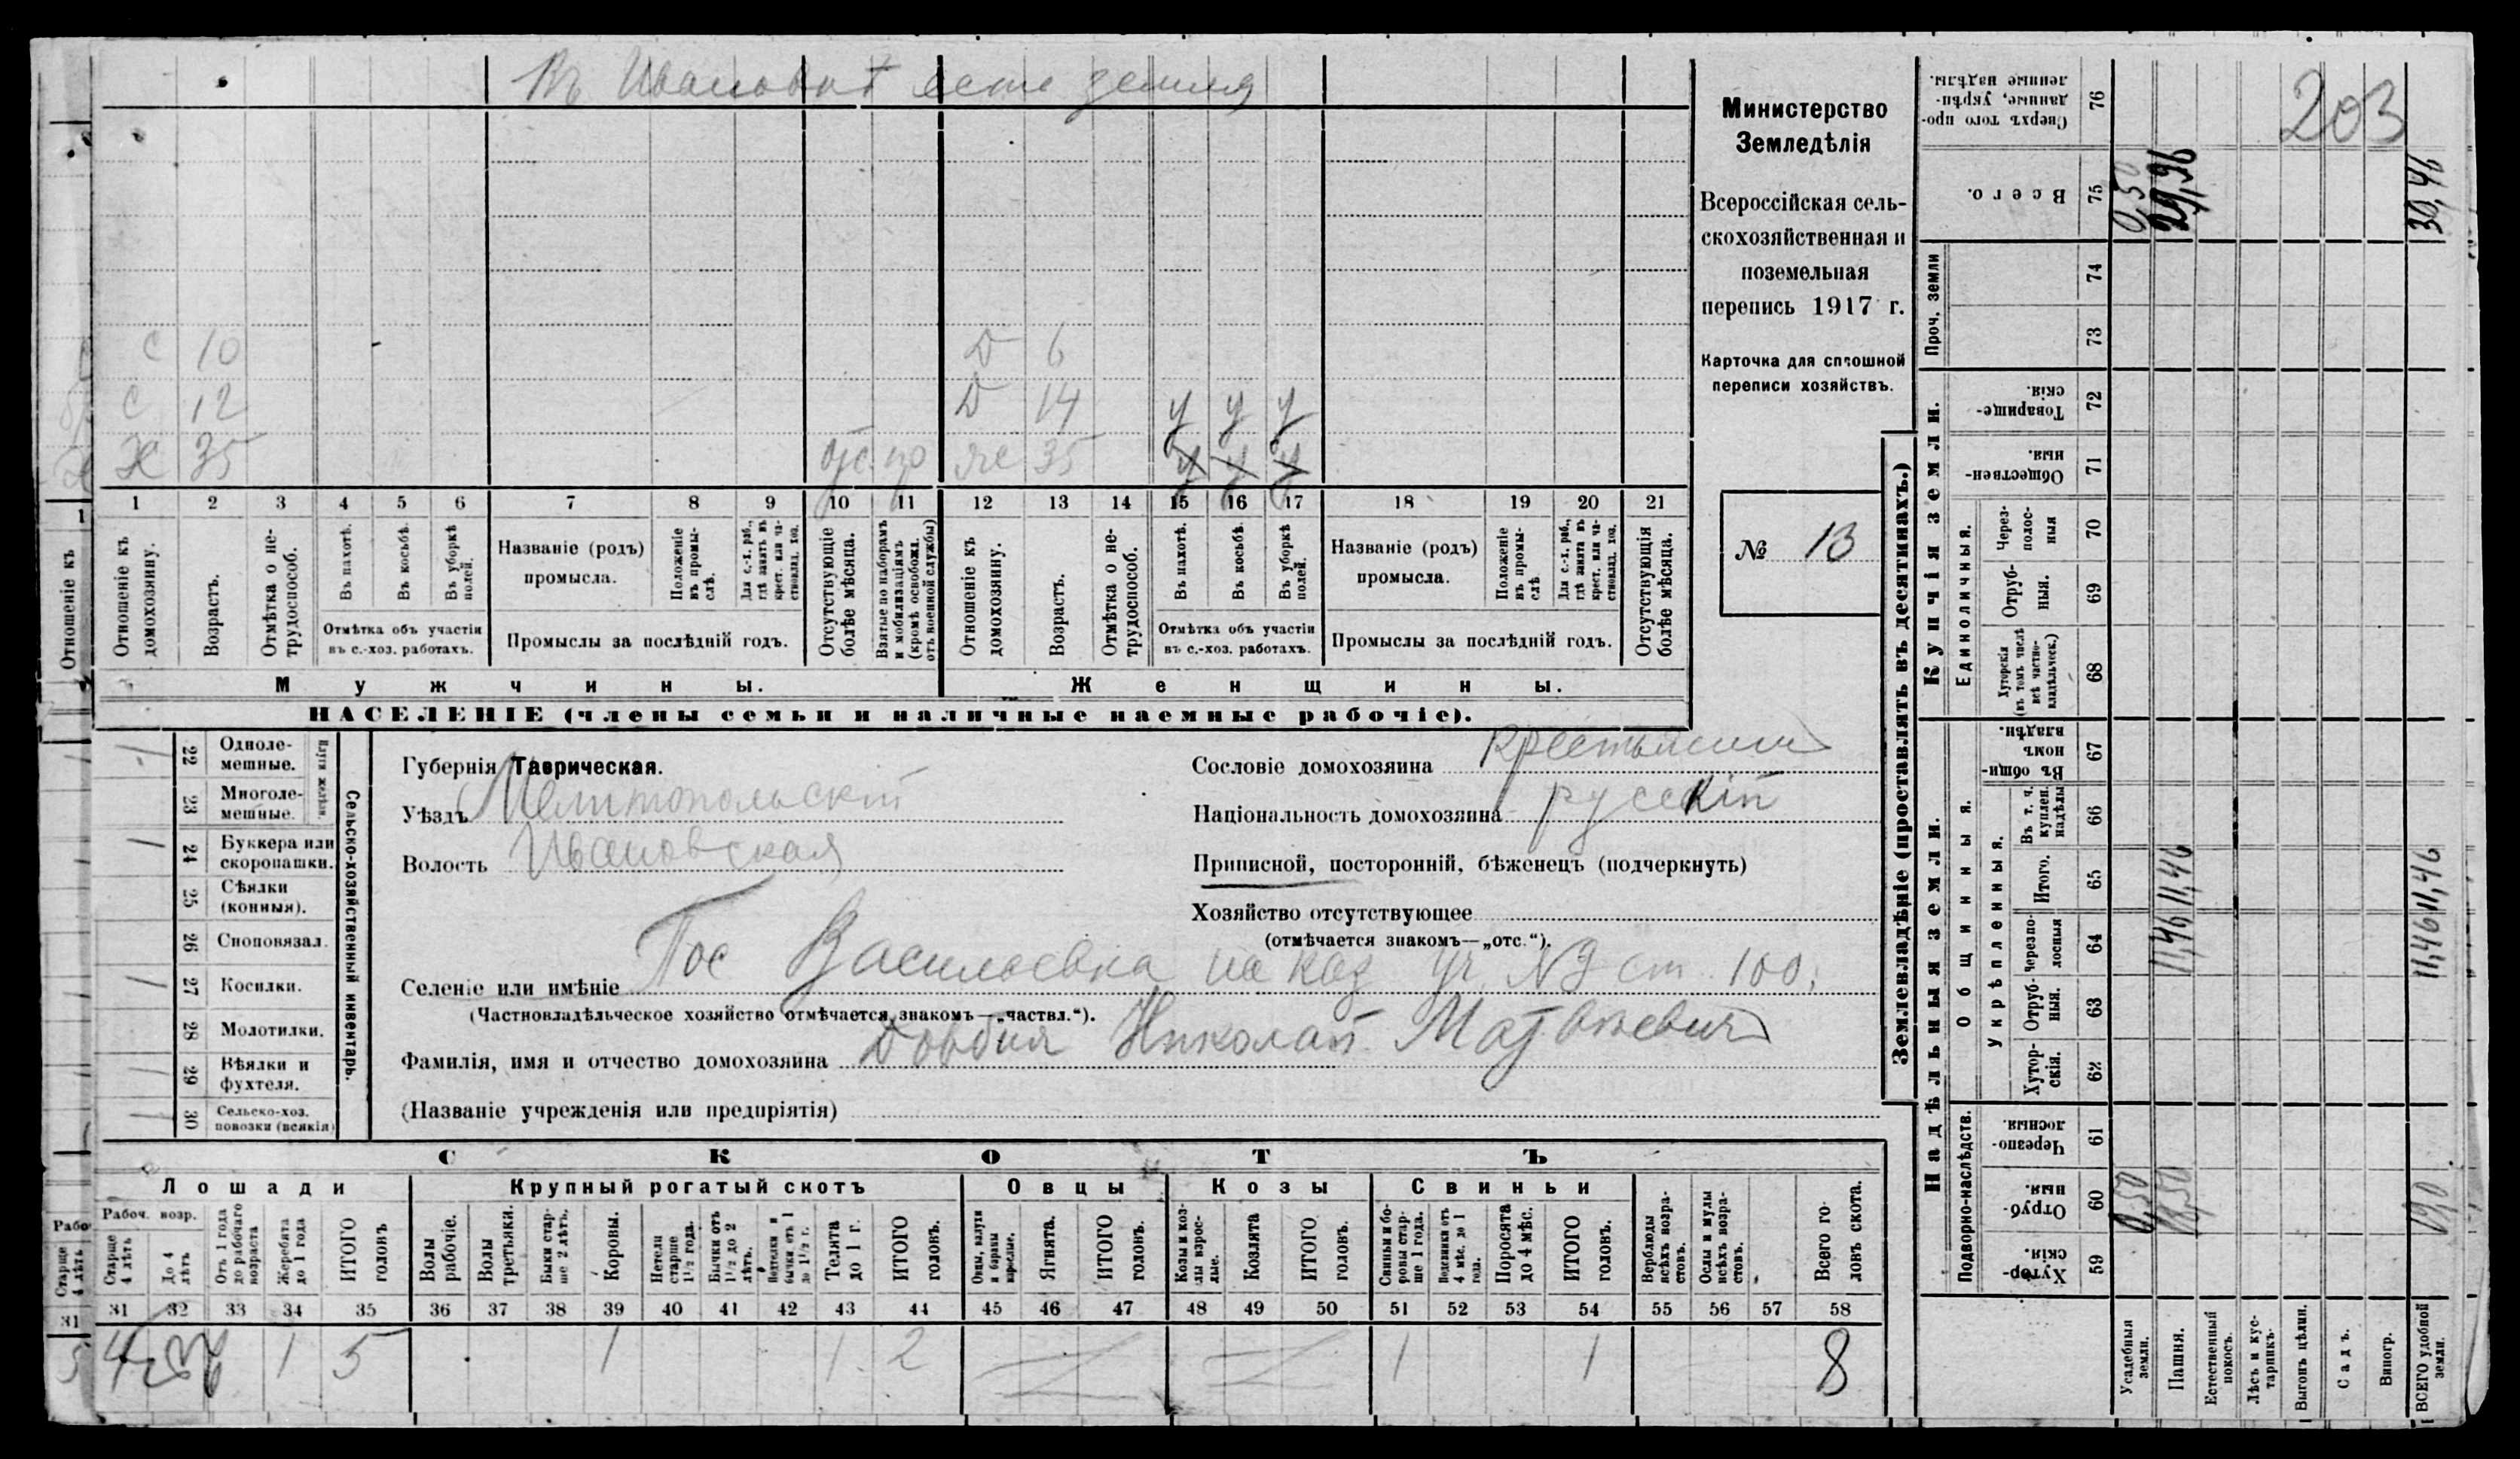 Въ Ивановкѣ есть земля
Министерство
Земледѣлія
Всероссійская сель-
скохозяйственная и
поземельная
перепись 1917 г.
Карточка для сплошной
переписи хозяйствъ.
№ 13
с 10 Д 6
с 12 Д 14 у у у
Х 35 отс. 35 у у у
1 2 3 4 5 6 7 8 9 10 11 12 13 14 15 16 17 18 19 20 21
Отношеніе къ
домохозяину.
Возрастъ.
Отмѣтка о не-
трудоспособ.
Въ пахотѣ.
Въ косьбѣ.
Въ уборкѣ
полей.
Отмѣтка объ участіи
въ с.-хоз. работахъ.
Названіе (родъ)
промысла.
Положеніе
въ промы-
слѣ.
Для с.-х. раб.,
гдѣ занятъ въ
крест. или ча-
стновлад. хоз.
Промыслы за послѣдній годъ.
Отсутствующіе
болѣе мѣсяца.
Взятые по наборамъ
и мобилизаціямъ
(кромѣ освобожд.
отъ военной службы)
Отношеніе къ
домохозяину.
Возрастъ.
Отмѣтка о не-
трудоспособ.
Въ пахотѣ.
Въ косьбѣ.
Въ уборкѣ
полей.
Отмѣтка объ участіи
въ с.-хоз. работахъ.
Названіе (родъ)
промысла.
Положеніе
въ промы-
слѣ
Для с.-х. раб.,
гдѣ занята въ
крест. или ча-
стновлад. хоз.
Промыслы за послѣдній годъ.
Отсутствующія
болѣе мѣсяца.
Мужчины.
Женщины.
НАСЕЛЕНІЕ (члены семьи и наличные наемные рабочіе).
Отношеніе къ
1
22 Одноле-
мешные.
23 Многоле-
мешные.
24 Буккера или
скоропашки.
25 Сѣялки
(конныя).
26 Сноповязал.
27 Косилки.
28 Молотилки.
29 Вѣялки и
фухтеля.
30 Сельско-хоз.
повозки (всякія)
Сельско-хозяйственный инвентарь.
Губернія Таврическая.
Уѣздъ Мелитопольскій
Волость Ивановская
Сословіе домохозяина крестьянин
Національность домохозяина русскій
Приписной, посторонній, бѣженецъ (подчеркнуть)
Хозяйство отсутствующее
(отмѣчается знакомъ—„отс.“).
Селеніе или имѣніе Пос Васильевка на каз уч. № ст. 100.
(Частновладѣльческое хозяйство отмѣчается знакомъ—„частвл.“).
Фамилія, имя и отчество домохозяина Довбня Николай Матвѣевич
(Названіе учрежденія или предпріятія)
СКОТЪ
Лошади
Рабоч. возр.
Старше
4 лѣтъ
До 4
лѣтъ
Отъ 1 года
до рабочаго
возраста
Жеребята
до 1 года
ИТОГО
головъ
Крупный рогатый скотъ
Волы
рабочіе.
Волы
третьяки.
Быки стар-
ше 2 лѣтъ.
Коровы.
Нетели
старше
1 1/2 года.
Бычки отъ
1 1/2 до 2
лѣтъ.
Нетелки и
бычки отъ 1
до 1 1/2 г.
Телята
до 1 г.
ИТОГО
головъ.
Овцы
Овцы, валухи
и бараны
взрослые.
Ягнята.
ИТОГО
головъ.
Козы
Козы и коз-
лы взрос-
лые.
Козлята
ИТОГО
головъ.
Свиньи
Свиньи и бо-
ровы стар-
ше 1 года.
Подсвинки отъ
4 мѣс. до 1
года.
Поросята
до 4 мѣс.
ИТОГО
головъ.
Верблюды
всѣхъ возра-
стовъ.
Ослы и мулы
всѣхъ возра-
стовъ.
Всего го-
ловъ скота.
Старше
4 лѣтъ
31
31 32 33 34 35 36 37 38 39 40 41 42 43 44 45 46 47 48 49 50 51 52 53 54 55 56 57 58
4 1 5 1 1 2 1 1 8
Землевладѣніе (проставлять въ десятинахъ.)
Надѣльныя земли.
Купчія земли.
Проч. земли
Подворно-наслѣдств.
Общинныя.
Укрѣпленныя.
Единоличныя.
Сверхъ того про-
данные, укрѣп-
ленные надѣлы.
76
Всего.
75
74
73
Товарище-
скія.
72
Обществен-
ныя.
71
Через-
полос-
ныя
70
Отруб-
ныя.
69
Хуторскія
(въ томъ числѣ
всѣ частно-
владѣльческ.)
68
Въ общин-
номъ
владѣн.
67
Въ т. ч.
куплен.
надѣлы
66
Итого.
65
Черезпо-
лосныя
64
Отруб-
ныя.
63
Хутор-
скія.
62
Черезпо-
лосныя.
61
Отруб-
ныя.
60
Хутор-
скія.
59
203
0,50
29,96
30,46
11,46 11,46
11,46 11,46
0,50
18,50
19,0
Усадебныя
земли.
Пашня.
Естественный
покосъ.
Лѣсъ и кус-
тарникъ.
Выгонъ цѣлин.
Садъ.
Виногр.
ВСЕГО удобной
земли.